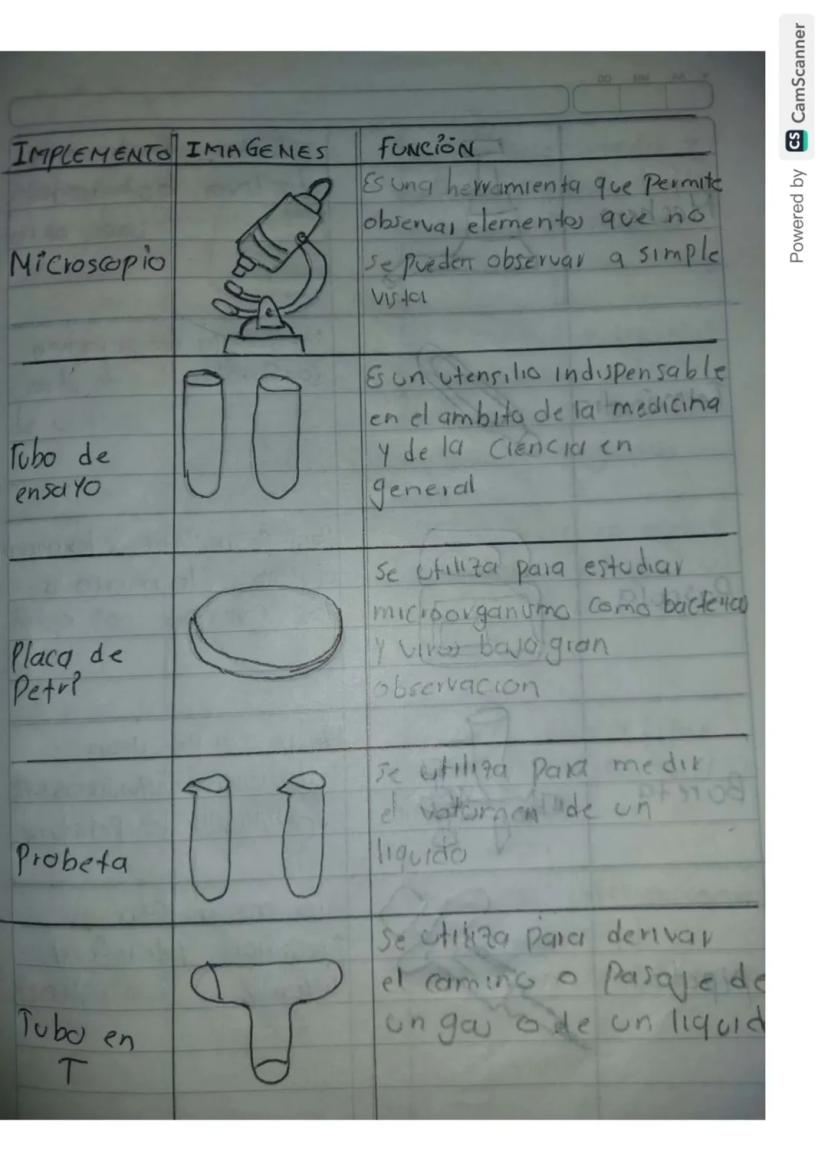 IMPLEMENTO IMAGENES FUNCIÓN
Microscopio
Es una herramienta que Permite
observar elementos que no
se pueden observar a simple
vista
Tubo de
ensayo
Es un utensilio indispensable
en el ambito de la medicina
y de la Ciencia en
general
Placa de
Petri
se utiliza para estudiar
microorganismo como bacterias
y virus bajo gran
observacion
Probeta
se utiliza para medir
el volumen de un
liquido
Tubo en
T
se utiliza para derivar
el camino o Pasaje de
un gas o de un liquid
Powered by CS CamScanner